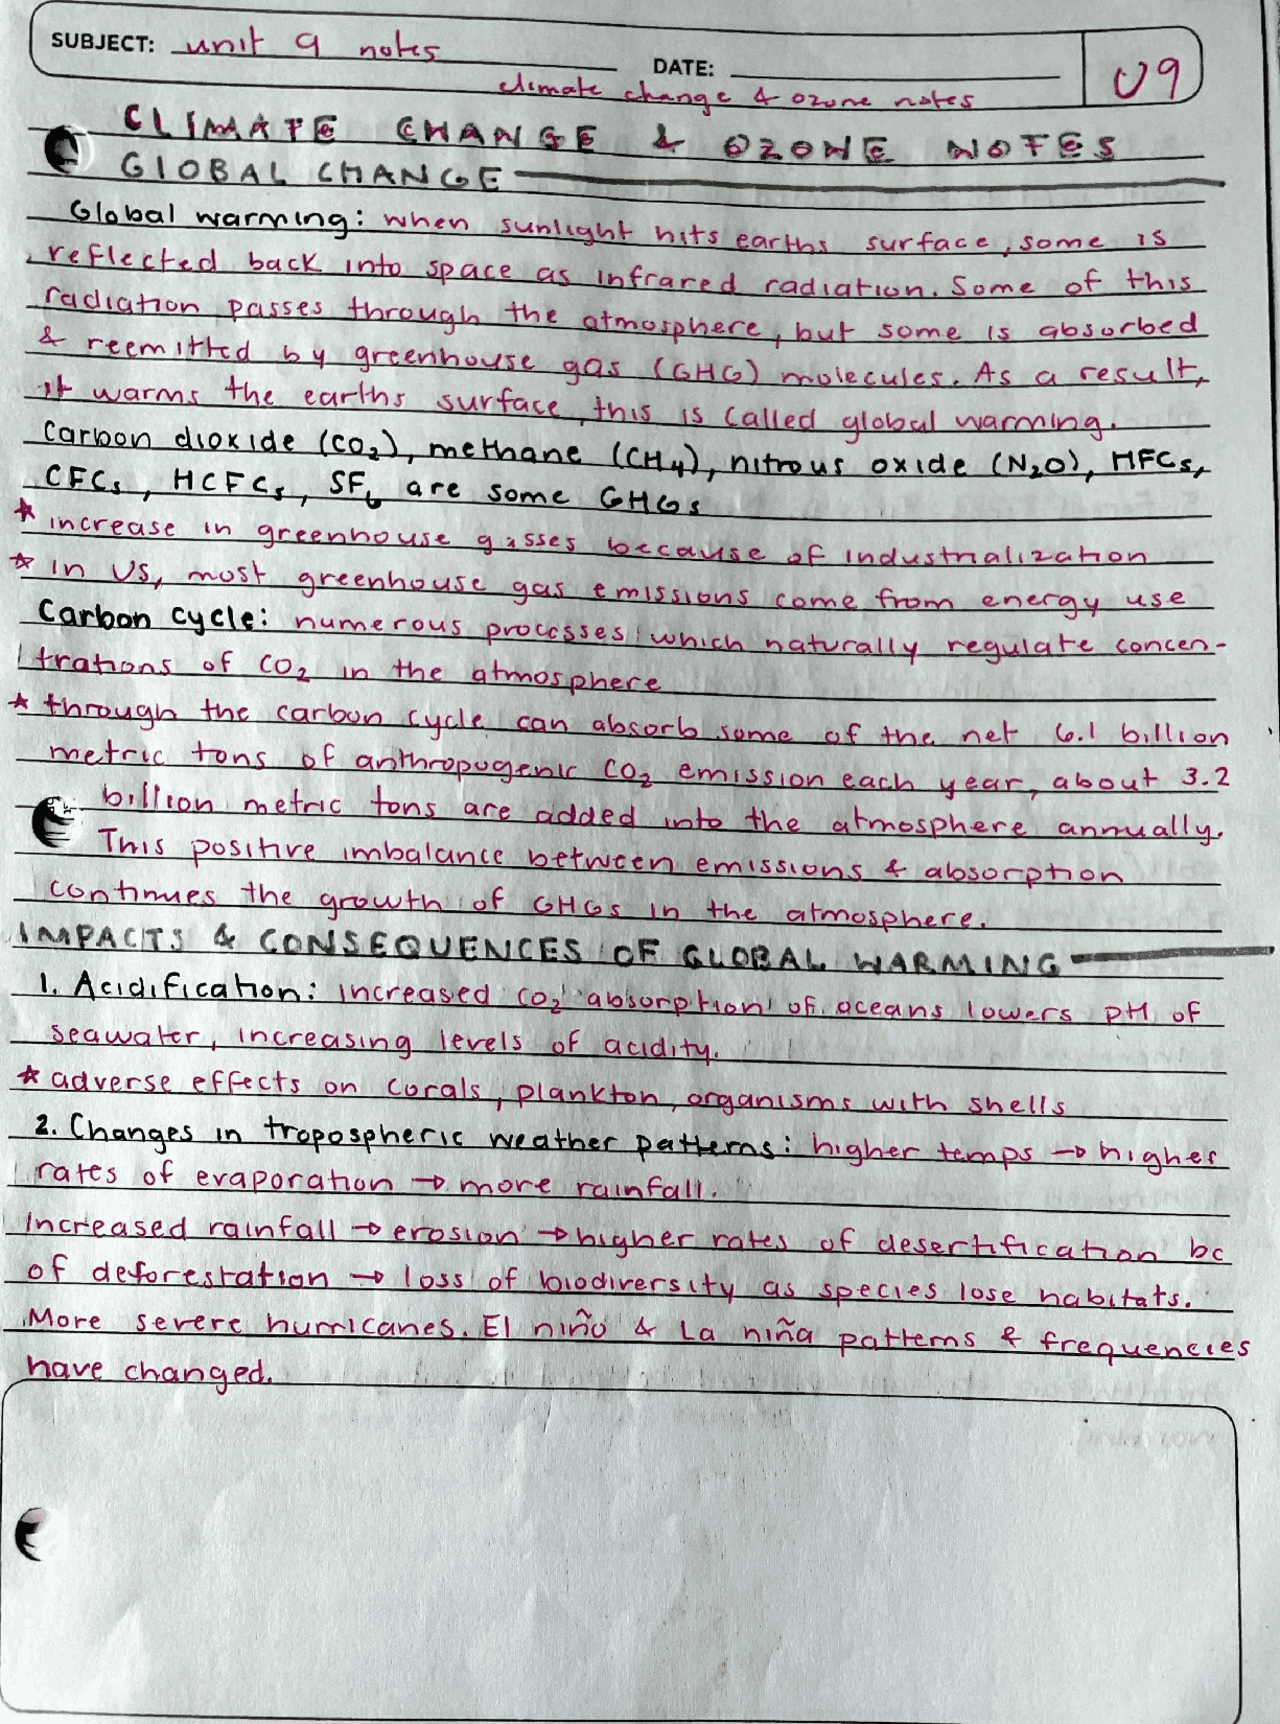 SUBJECT: unit 9 notes
DATE:
U9
climate change & ozone notes
CLIMATE CHANGE & OZONE NOTES
GLOBAL CHANGE
Global warming: when sunlight hits earths surface, some is
reflected back into space as infrared radiation. Some of this
radiation passes through the atmosphere, but some is absorbed
& reemitted by greenhouse gas (GHG) molecules. As a result,
it warms the earths surface, this is called global warming.
Carbon dioxide (CO₂), methane (CH₄), nitrous oxide (N₂O), HFCs,
CFCs, HCFCs, SF₆ are some GHGs
* increase in greenhouse gasses because of industrialization
* in US, most greenhouse gas emissions come from energy use
Carbon cycle: numerous processes which naturally regulate concen-
trations of CO₂ in the atmosphere
* through the carbon cycle can absorb some of the net 6.1 billion
metric tons of anthropogenic CO₂ emission each year, about 3.2
billion metric tons are added into the atmosphere annually.
This positive imbalance between emissions & absorption
continues the growth of GHGs in the atmosphere.
IMPACTS & CONSEQUENCES OF GLOBAL WARMING
1. Acidification: increased CO₂ absorption of oceans lowers pH of
seawater, increasing levels of acidity.
* adverse effects on corals, plankton, organisms with shells
2. Changes in tropospheric weather patterns: higher temps → higher
rates of evaporation → more rainfall.
Increased rainfall → erosion → higher rates of desertification bc
of deforestation → loss of biodiversity as species lose habitats.
More severe hurricanes. El niño & La niña patterns & frequencies
have changed.